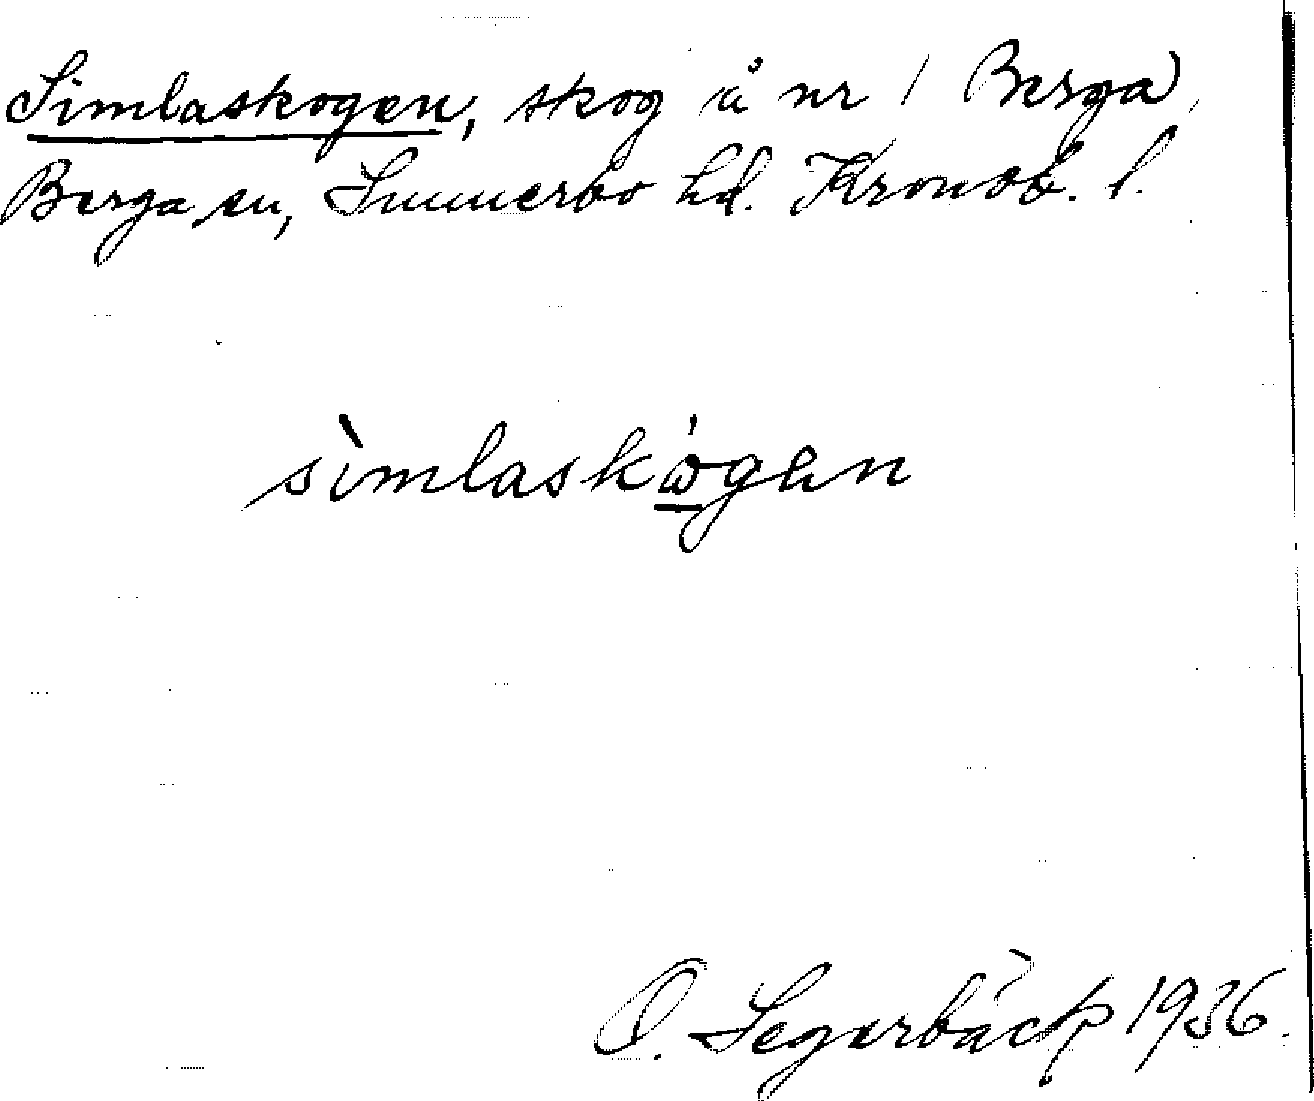 Simlaskogen, skog å nr 1 Berga,
Berga sn, Sunnerbo hd. Kronob. l.
sìmlaskògen
O. Segerbäck 1936.